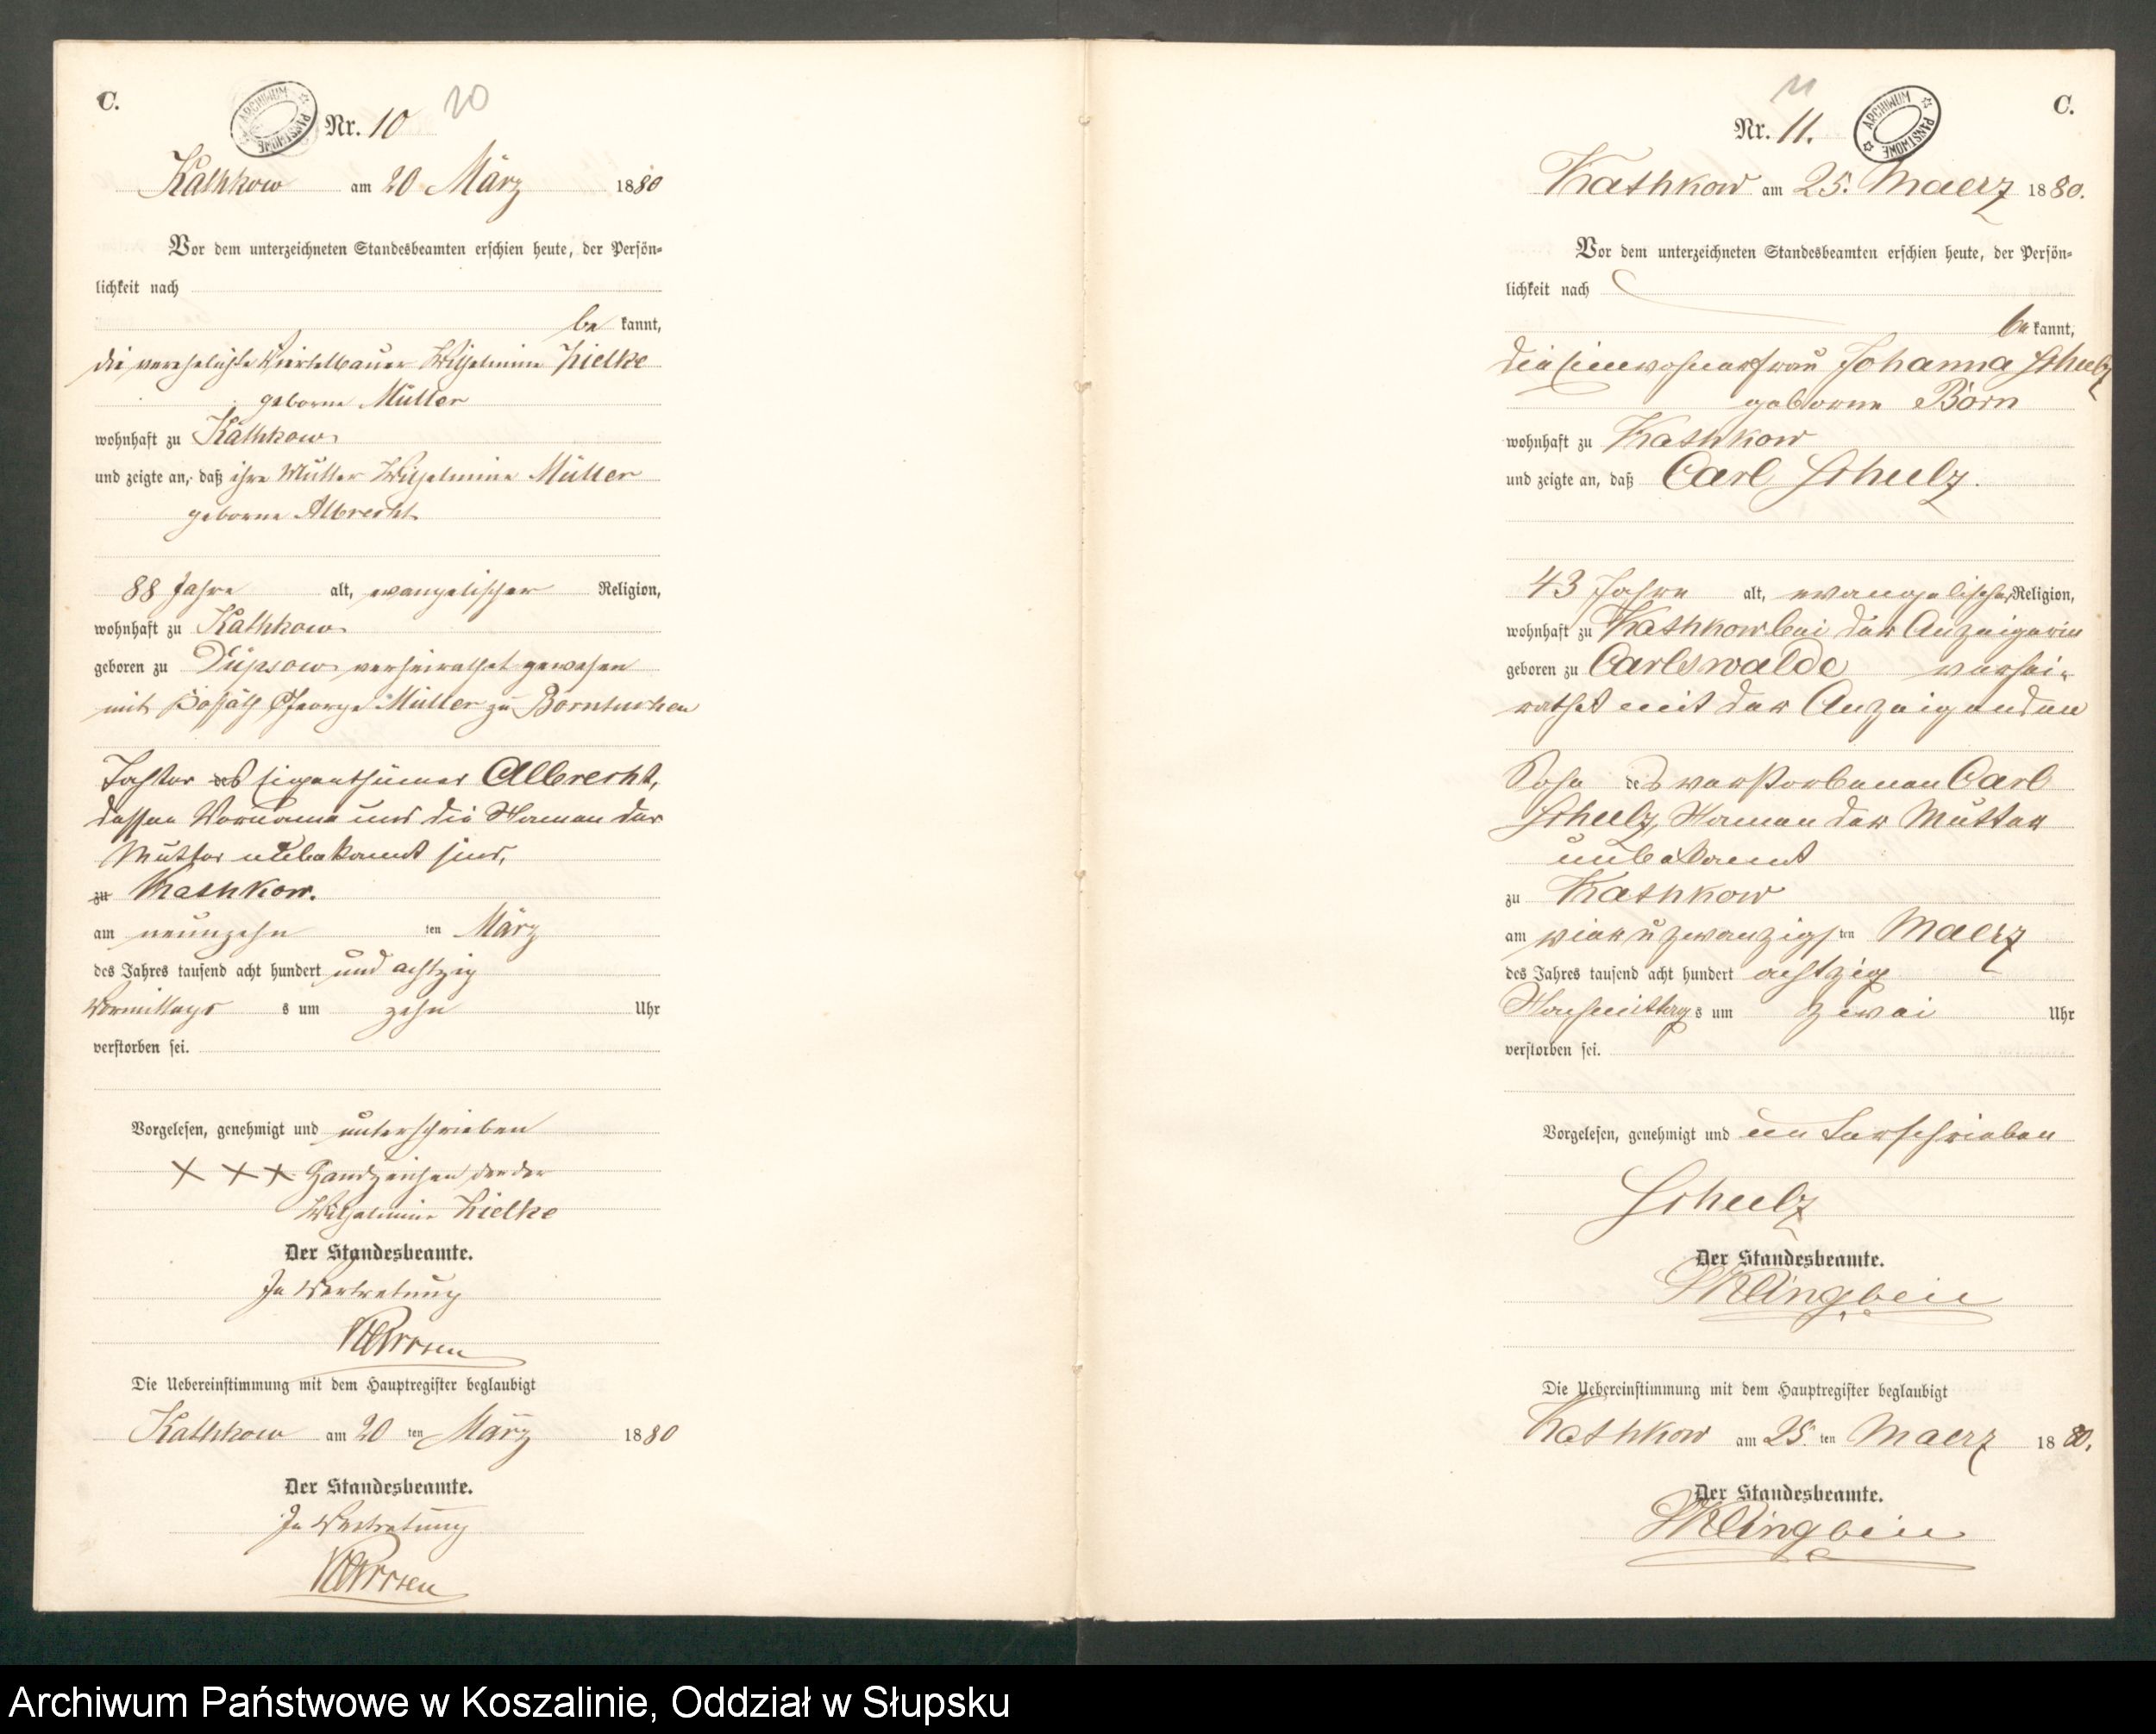 C.
ARCHIWUM PAŃSTWOWE
Nr. 10
20
Kathkow am 20 März 1880
Vor dem unterzeichneten Standesbeamten erschien heute, der Persön-
lichkeit nach
be kannt,
die verehelichte Viertelbauer Wilhelmine Zielke
geborne Müller
wohnhaft zu Kathkow
und zeigte an, daß ihre Mutter Wilhelmine Müller
geborne Albrecht
88 Jahre alt, evangelischer Religion,
wohnhaft zu Kathkow
geboren zu verheirathet gewesen
mit George Müller zu Borntuchen
Tochter des Eigenthümer Albrecht,
dessen Vorname und die Namen der
Mutter unbekannt sind,
zu Kathkow.
am neunzehn ten März
des Jahres tausend acht hundert und achtzig
Vormittags s um zehn Uhr
verstorben sei.
Vorgelesen, genehmigt und unterschrieben
+ + + Handzeichen der
Wilhelmine Zielke
Der Standesbeamte.
In Vertretung
Die Uebereinstimmung mit dem Hauptregister beglaubigt
Kathkow am 20 ten März 1880
Der Standesbeamte.
In Vertretung
C.
11
Nr. 11.
ARCHIWUM PAŃSTWOWE
Kathkow am 25. Maerz 1880.
Vor dem unterzeichneten Standesbeamten erschien heute, der Persön-
lichkeit nach
be kannt,
die Einwohnerfrau Johanna Schulz
geborne Born
wohnhaft zu Kathkow
und zeigte an, daß Carl Schulz.
43 Jahre alt, evangelischer Religion,
wohnhaft zu Kathkow bei der Anzeigerin
geboren zu Carlswalde verhei-
rathet mit der Anzeigenden
Sohn des verstorbenen Carl
Schulz, Namen der Mutter
unbekannt
zu Kathkow
am vier u zwanzigsten Maerz
des Jahres tausend acht hundert achtzig
Nachmittags um zwei Uhr
verstorben sei.
Vorgelesen, genehmigt und unterschrieben
Schulz
Der Standesbeamte.
Klingbeil
Die Uebereinstimmung mit dem Hauptregister beglaubigt
Kathkow am 25. ten Maerz 1880.
Der Standesbeamte.
Klingbeil
Archiwum Państwowe w Koszalinie, Oddział w Słupsku